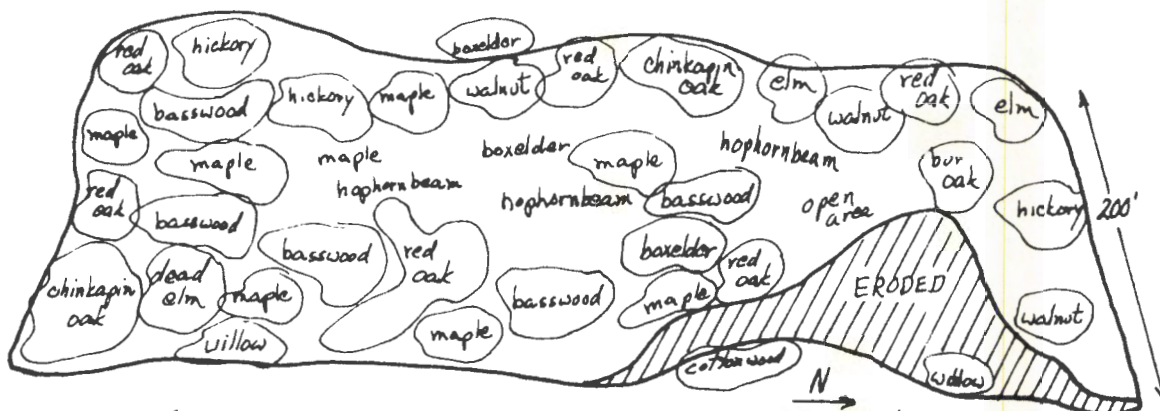 red
oak
hickory
boxelder
red
oak
chinkapin
oak
elm
red
oak
elm
basswood
hickory
maple
walnut
walnut
maple
maple
maple
boxelder
maple
hophornbeam
bur
oak
red
oak
hophornbeam
hophornbeam
basswood
open
area
hickory
200'
basswood
basswood
red
oak
boxelder
red
oak
ERODED
chinkapin
oak
dead
elm
maple
basswood
maple
walnut
willow
maple
cottonwood
willow
N